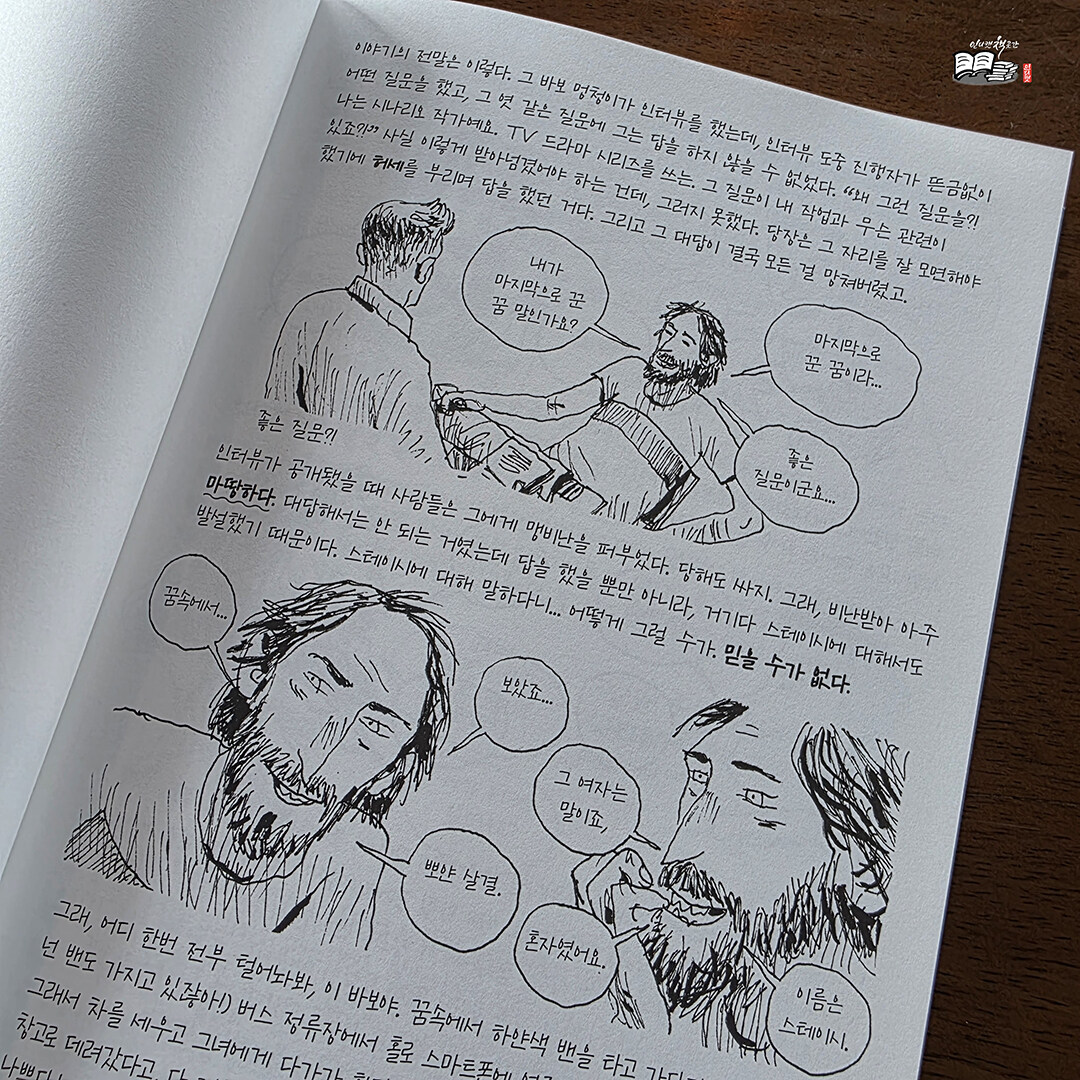 이야기의 전말은 이렇다. 그 바보 멍청이가 인터뷰를 했는데, 인터뷰 도중 진행자가 뜬금없이
어떤 질문을 했고, 그 엿 같은 질문에 그는 답을 하지 않을 수 없었다. “왜 그런 질문을?!
나는 시나리오 작가예요. TV 드라마 시리즈를 쓰는. 그 질문이 내 작업과 무슨 관련이
있죠?!” 사실 이렇게 받아넘겼어야 하는 건데, 그러지 못했다. 당장은 그 자리를 잘 모면해야
했기에 허세를 부리며 답을 했던 거다. 그리고 그 대답이 결국 모든 걸 망쳐버렸고.
내가
마지막으로 꾼
꿈 말인가요?
마지막으로
꾼 꿈이라...
좋은
질문이군요...
좋은 질문?!
인터뷰가 공개됐을 때 사람들은 그에게 맹비난을 퍼부었다. 당해도 싸지. 그래, 비난받아 아주
마땅하다. 대답해서는 안 되는 거였는데 답을 했을 뿐만 아니라, 거기다 스테이시에 대해서도
발설했기 때문이다. 스테이시에 대해 말하다니... 어떻게 그럴 수가. 믿을 수가 없다.
꿈속에서...
보았죠...
뽀얀 살결.
그 여자는
말이죠,
혼자였어요.
이름은
스테이시.
그래, 어디 한번 전부 털어놔봐, 이 바보야. 꿈속에서 하얀색 밴을 타고
넌 밴도 가지고 있잖아!) 버스 정류장에서 홀로 스마트폰에
그래서 차를 세우고 그녀에게 다가가
창고로 데려갔다고.